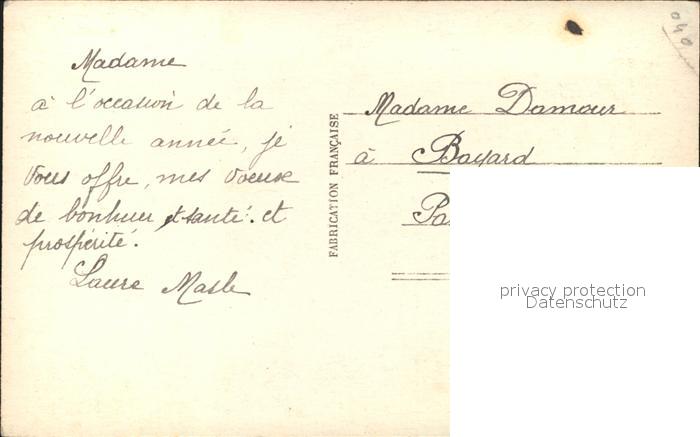 Madame
à l'occasion de la
nouvelle année, je
vous offre, mes voeuxe
de bonhuer, et santé. et
prospérité.
Laure Masle
FABRICATION FRANÇAISE
Madame Damour
à Bayard
Pa
privacy protection
Datenschutz
040